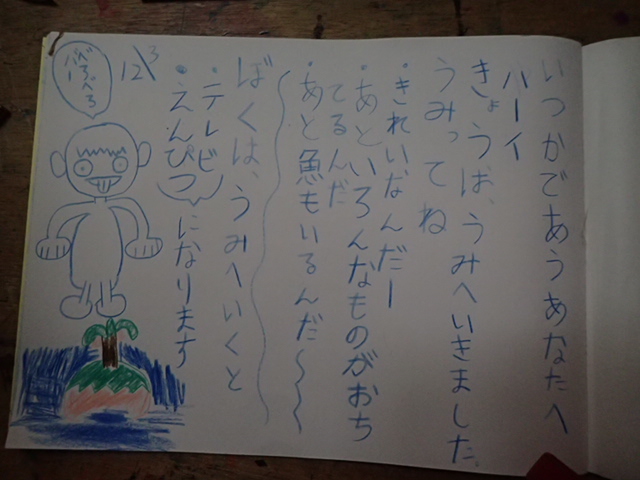 いつかであうあなたへ
ハーイ
きょうは、うみへいきました。
うみってね
・きれいなんだー
・あといろんなものがおち
てるんだ
・あと魚もいるんだ〜〜〜
ぼくは、うみへいくと
・テレビ
・えんぴつ になります
12\3